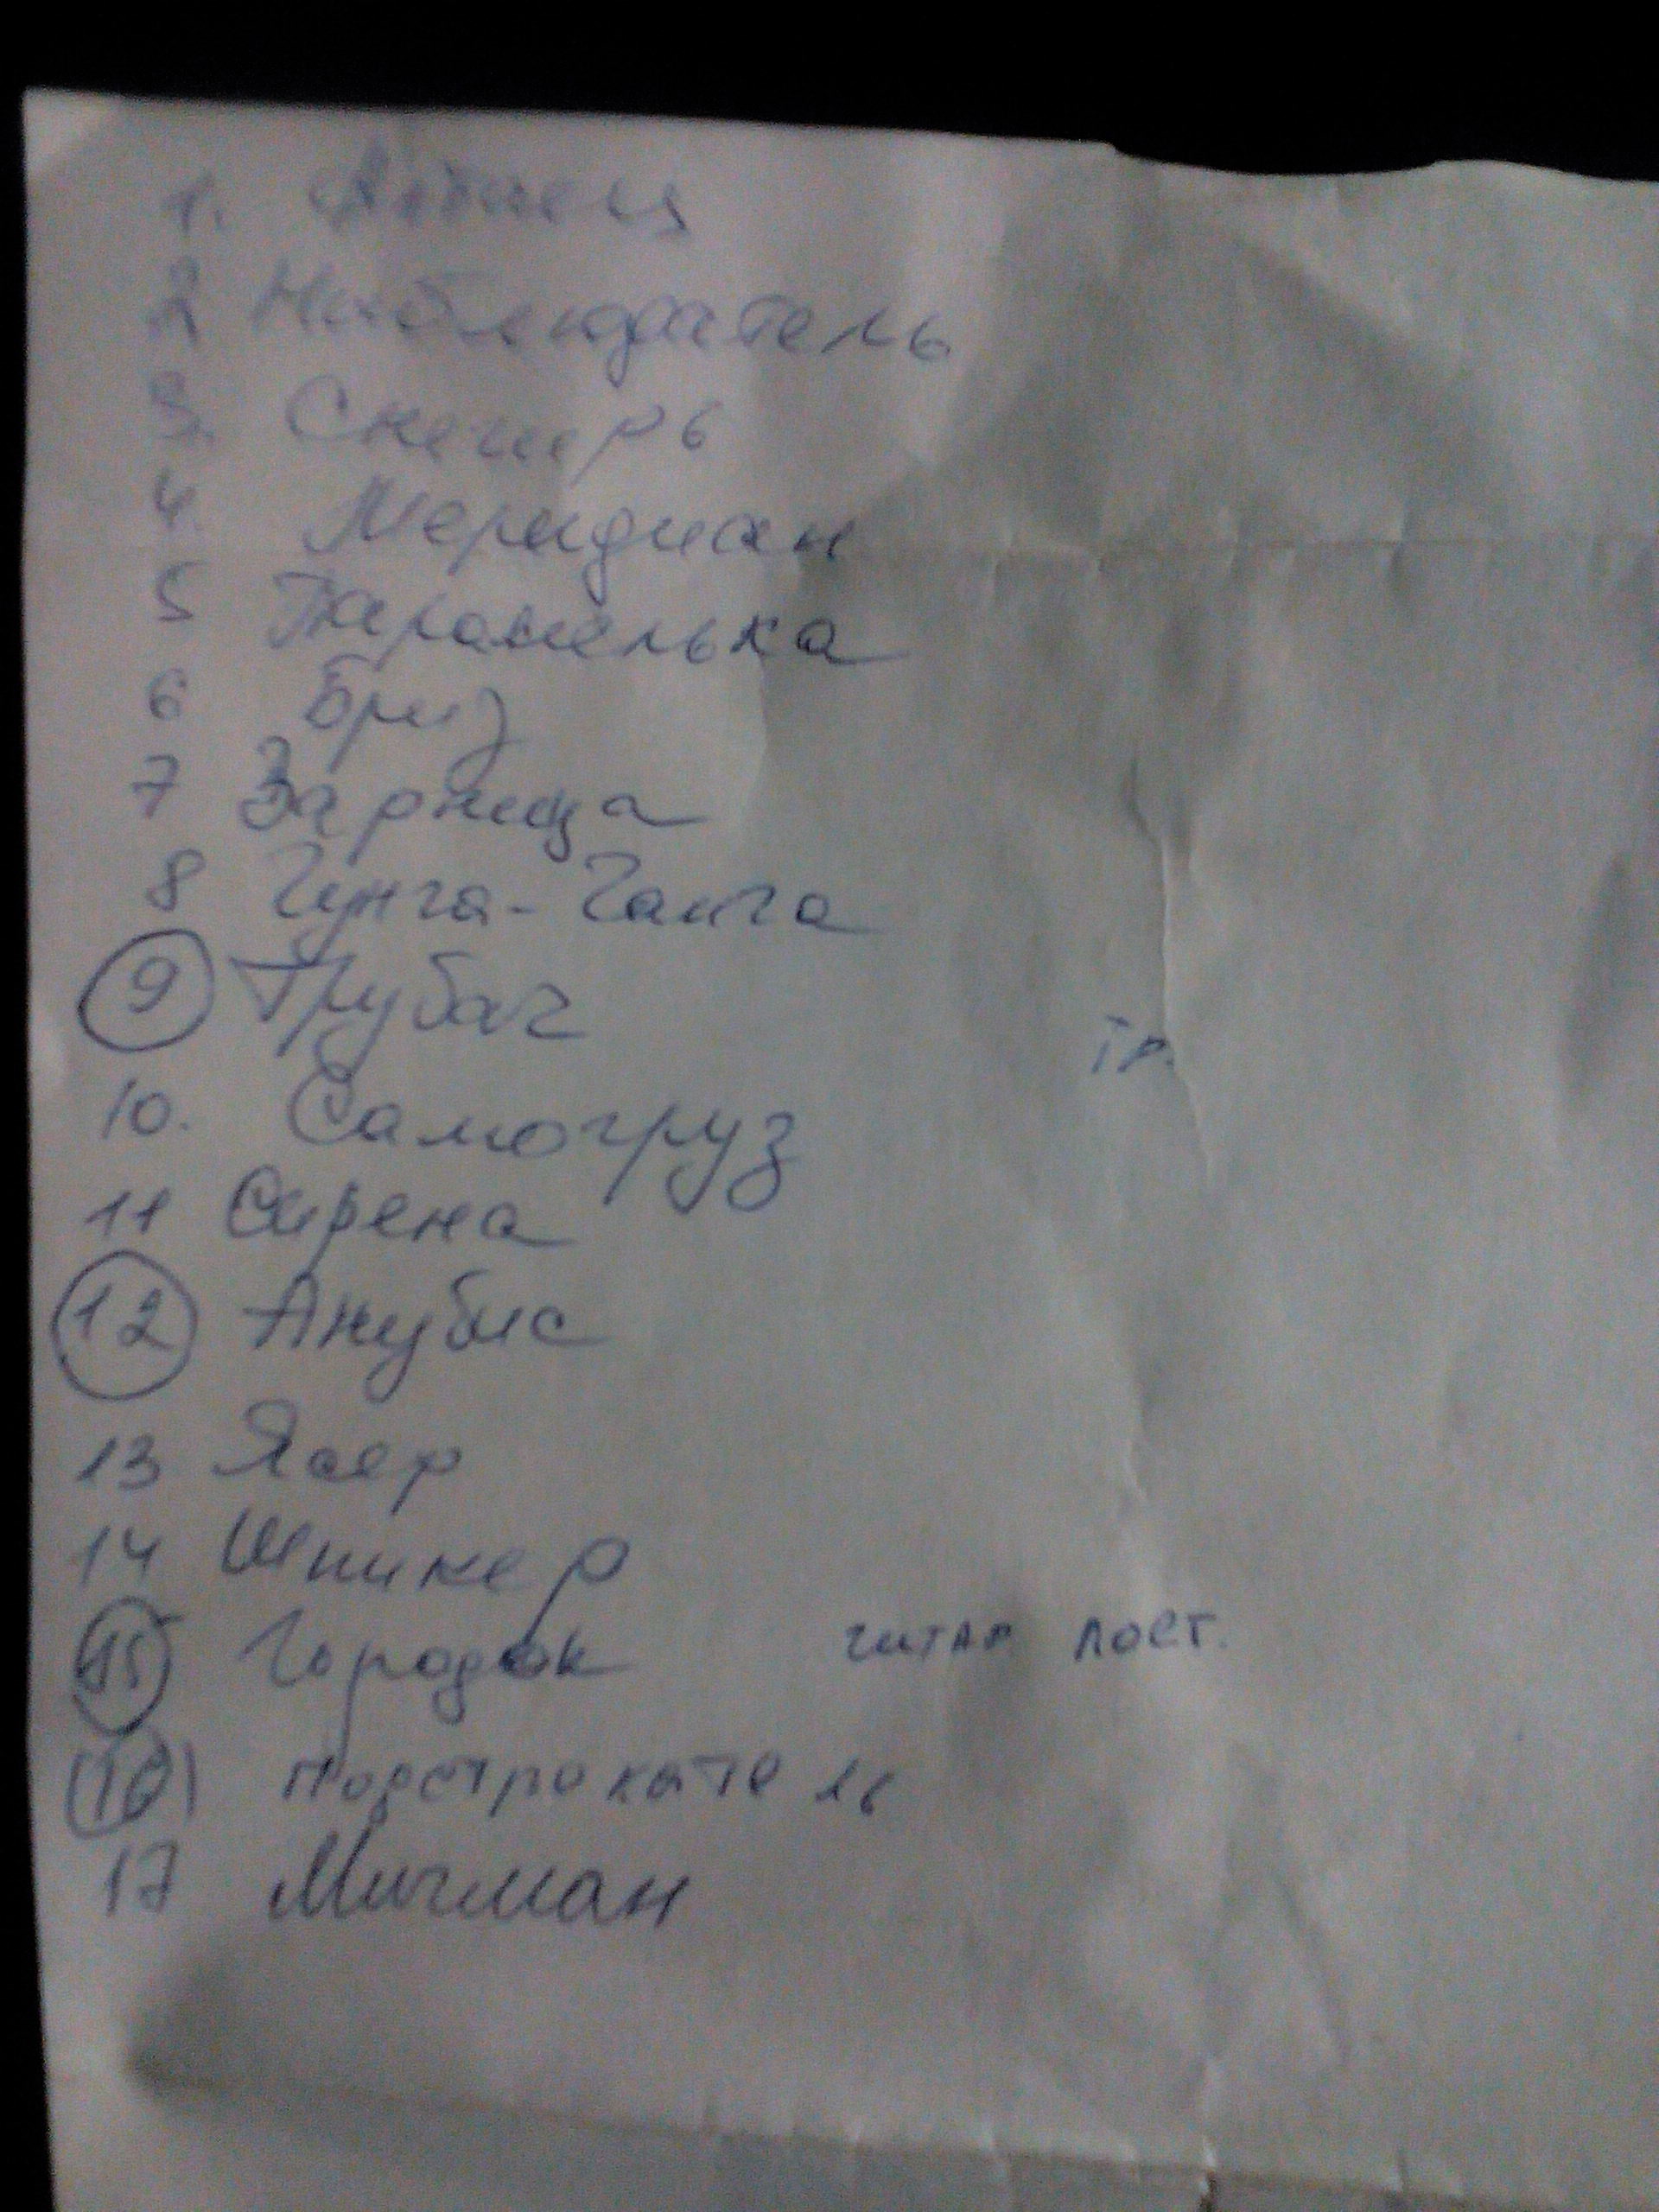 1.
2 Наблюдатель
3. Снегирь
4. Меридиан
5 Карамелька
6 Бриз
7 Зарница
8 Чунга-Чанга
9 Трубач
тр.
10. Самогруз
11 Сирена
12 Анубис
13 Ясер
14 Шпикер
15 Городок читар пост.
16 Подстрокатель
17 Мичман